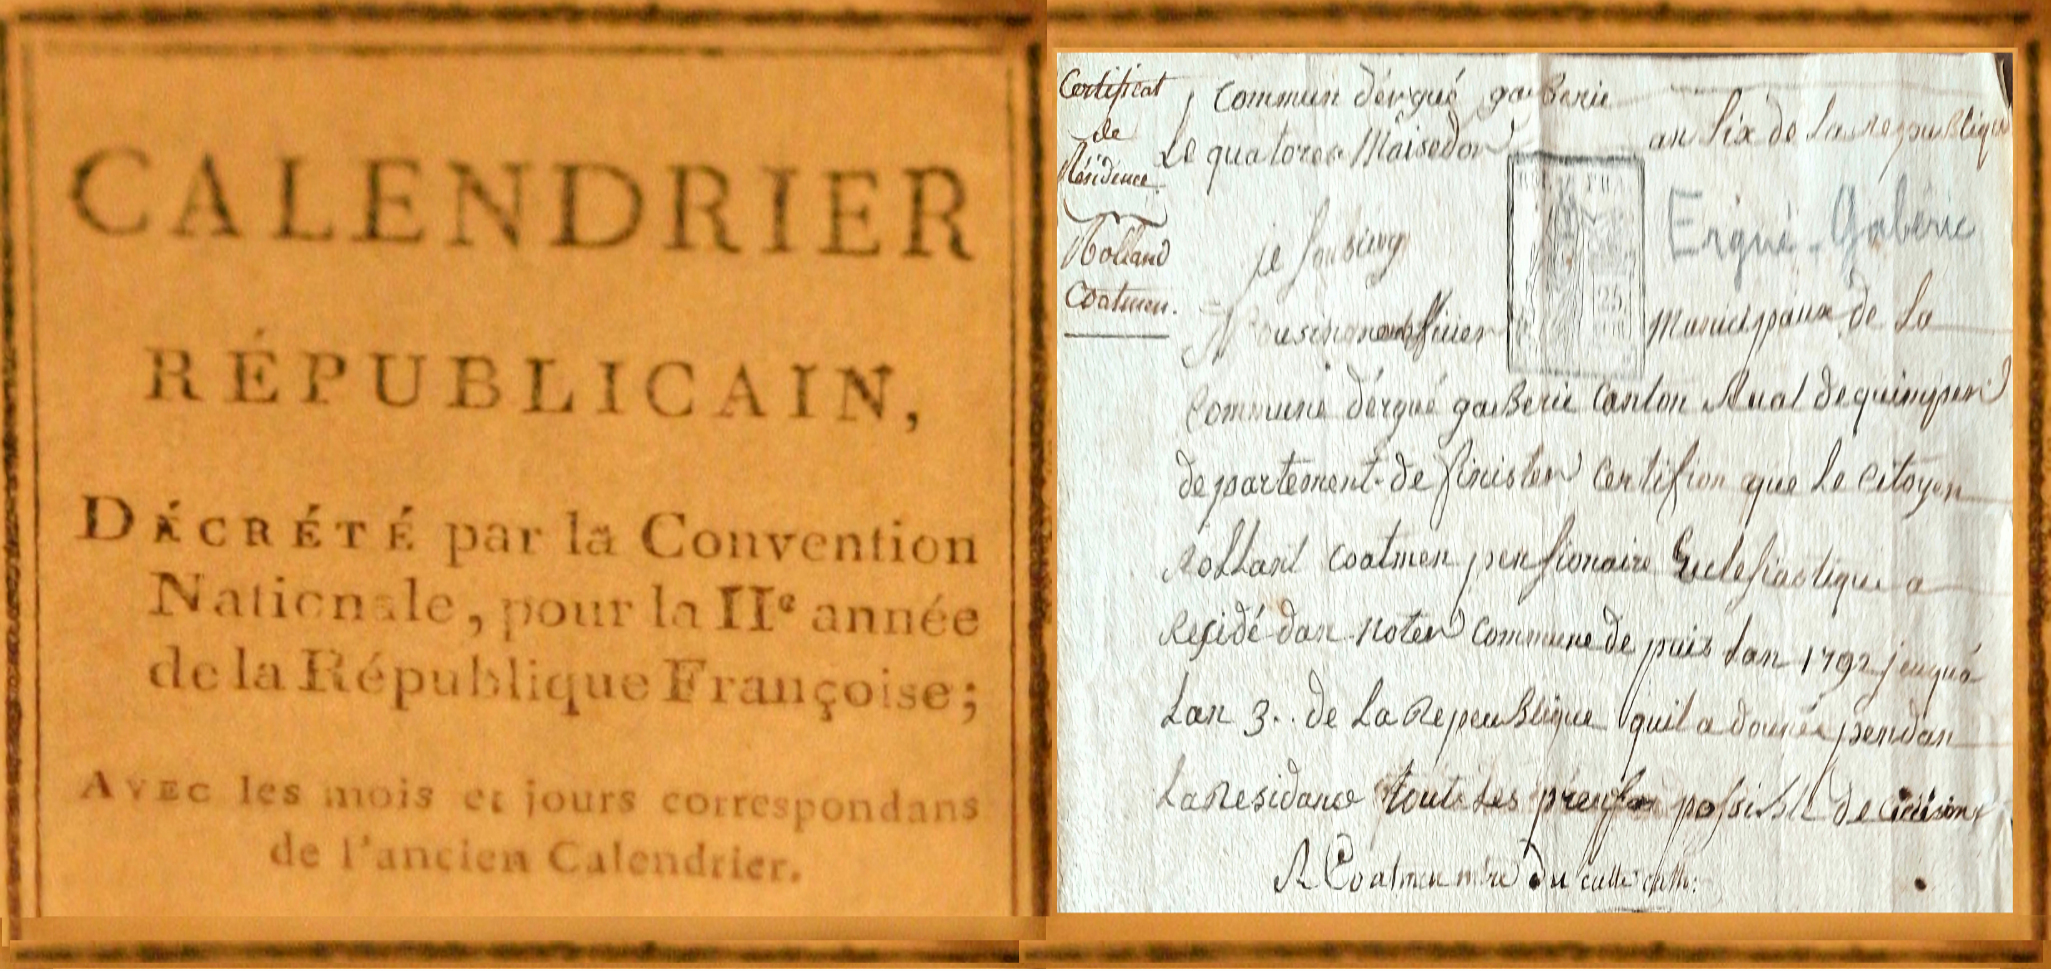 CALENDRIER
RÉPUBLICAIN,
DÉCRÉTÉ par la Convention
Nationale, pour la IIe année
de la République Françoise;
AVEC les mois et jours correspondans
de l'ancien Calendrier.
Certificat
de
Résidence
Rolland
Coatmen.
Commun dérgué gaberie
Le quatores Maisedor an six de La republique
Ergué-Gabéric
je sousing
25
municipaux de La
Commune dérgué gaberie Canton Rual de quimper
departement de finister certifion que Le Citoyen
Rollant Coatmen pensionaire Eclesiastique a
Residé dan noter Commune de puis Lan 1792 jeuqua
Lan 3.. de La Repeublique quil a donée pendan
La Residance toute Les possible de
R Coatmen du culte cath: